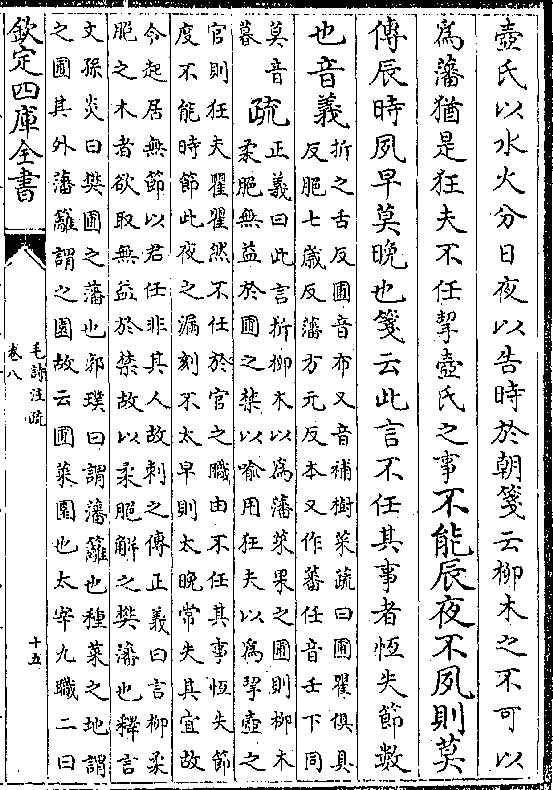 壺氏以水火分日夜以告時於朝箋云栁木之不可以
為藩猶是狂夫不任挈壺氏之事不能辰夜不夙則莫
傳辰時夙早莫晩也箋云此言不任其事者恆失節數
也音義折之舌反圃音布又音補樹菜蔬曰圃瞿俱具
反脃七歳反藩方元反本又作蕃任音壬下同
莫音暮疏正義曰此言折栁木以為藩菜果之圃則栁木
柔脃無益於圃之禁以喻用狂夫以為挈壺之
官則狂夫瞿瞿然不任於官之職由不任其事恆失節
度不能時節此夜之漏刻不太早則太晩常失其宜故
今起居無節以君任非其人故刺之傳正義曰言栁柔
脃之木者欲取無益於禁故以柔脃解之樊藩也釋言
文孫炎曰樊圃之藩也郭璞曰謂藩籬也種菜之地謂
之圃其外藩籬謂之園故云圃菜園也太宰九職二曰
欽定四庫全書
毛詩注疏
卷八
十五